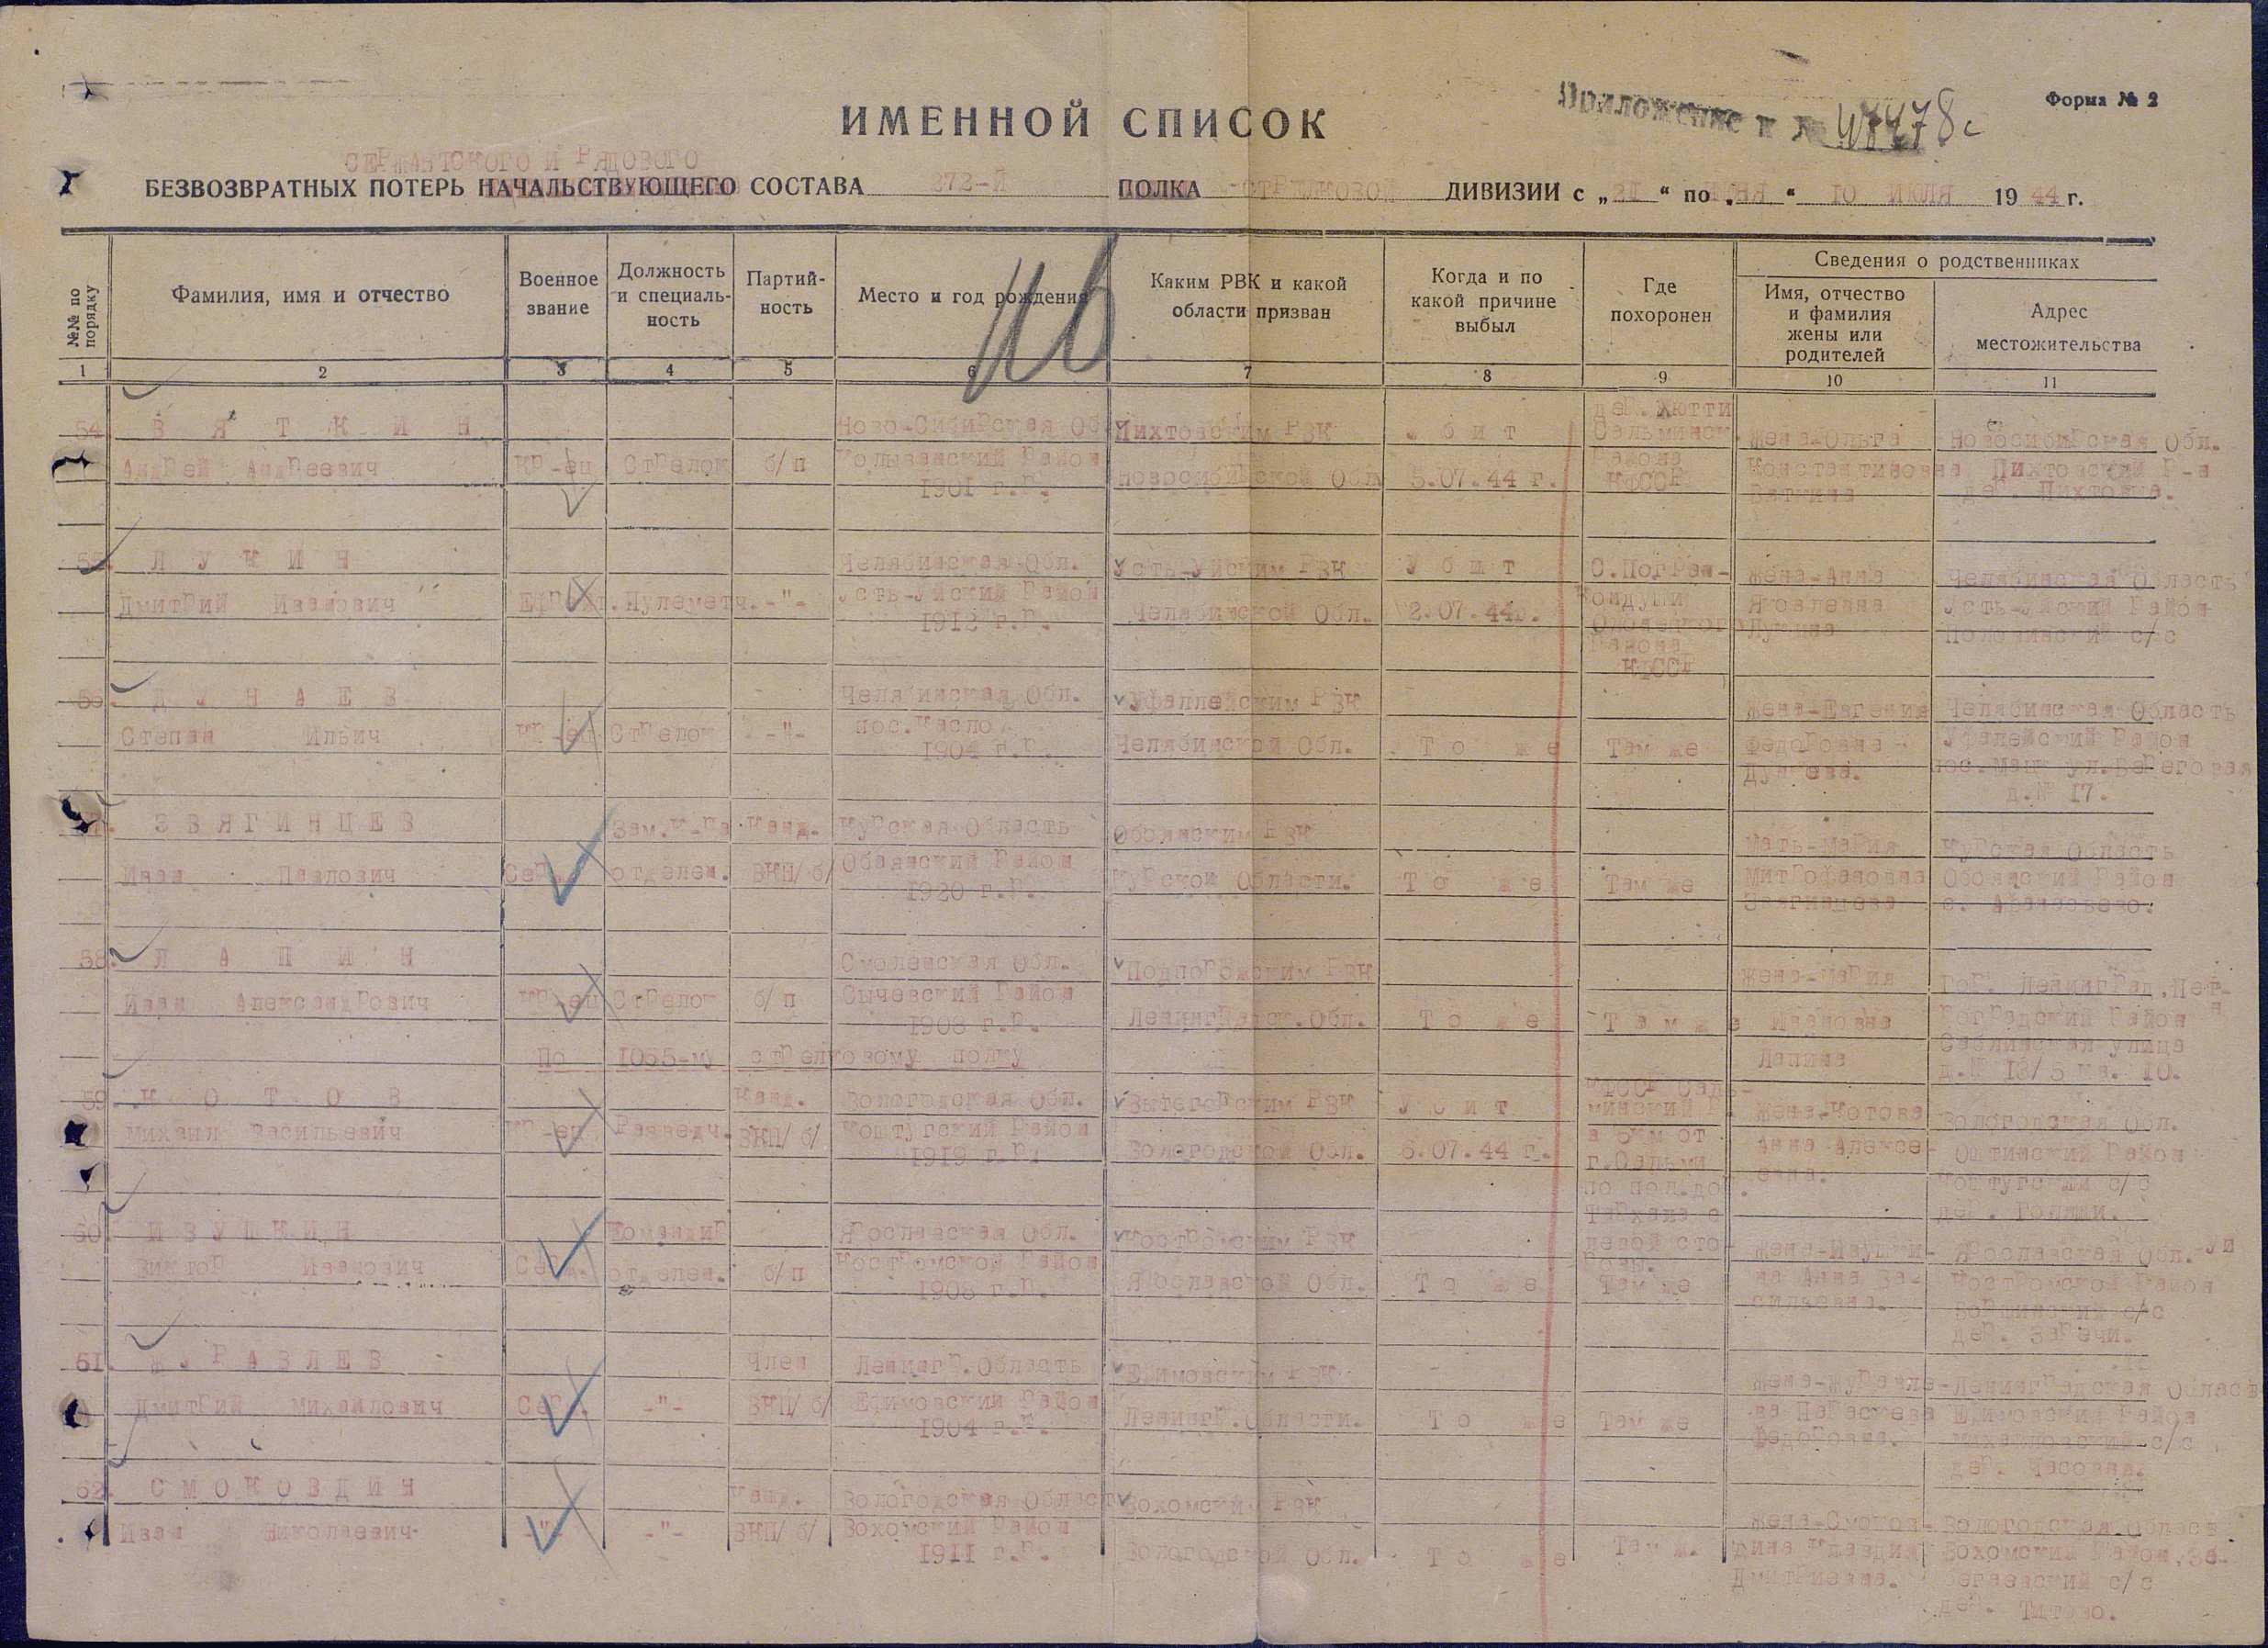 Приложение к № 47478с
Форма № 2
ИМЕННОЙ СПИСОК
СЕРЖАНТСКОГО И РЯДОВОГО
БЕЗВОЗВРАТНЫХ ПОТЕРЬ НАЧАЛЬСТВУЮЩЕГО СОСТАВА 272-Й ПОЛКА СТРЕЛКОВОЙ ДИВИЗИИ с „ “ по „ “ 10 ИЮЛЯ 1944 г.
№№ по порядку
Фамилия, имя и отчество
Военное звание
Должность и специальность
Партийность
Место и год рождения
Каким РВК и какой области призван
Когда и по какой причине выбыл
Где похоронен
Сведения о родственниках
Имя, отчество и фамилия жены или родителей
Адрес местожительства
1 2 3 4 5 6 7 8 9 10 11
54. ВЯТКИН
Андрей Андреевич Кр-ец Стрелок б/п
Ново-Сибирская Об
Колыванский Район
1901 г.р.
Пихтовским РВК
Новосибирской Обл
Убит
5.07.44 г.
Района
КФССР
Жена-Ольга
Константиновна
Вяткина
Новосибирская Обл.
Пихтовский Р-н
дер. Пихтовка.
55. ЛУКИН
Дмитрий Иванович Ефр-т. Пулеметч. -"-
Челябинская Обл.
Усть-Уйский Район
1912 г.р.
Усть-Уйским РВК
Челябинской Обл.
Убит
2.07.44г.
С.Погран-
кондуши
Олонецкого
Района
КФССР
Жена-Анна
Яковлевна
Лукина
Челябинская Область
Усть-Уйский Район
Половинский с/с
56. ДУНАЕВ
Степан Ильич Кр-ец Стрелок -"-
Челябинская Обл.
пос.Касло
1904 г.р.
Уфаллейским РВК
Челябинской Обл.
То же
Там же
Жена-Евгения
Федоровна
Дунаева.
Челябинская Область
Уфалейский Район
ул.Береговая
д.№ 17.
57. ЗВЯГИНЦЕВ
Иван Павлович Серж.
Зам.К-ра
отделен.
Канд.
ВКП/б/
Курская Область
Обоянский Район
1920 г.р.
Обоянским РВК
Курской Области.
То же
Там же
Мать-Мария
Митрофановна
Звягинцева
Курская Область
Обоянский Район
с. Афанасьево.
58. ЛАПИН
Иван Александрович Кр-ец Стрелок б/п
Смоленская Обл.
Сычевский Район
1908 г.р.
Подпорожским РВК
Ленинградск.Обл.
То же
Там же
Жена-Мария
Ивановна
Лапина
Гор. Ленинград, Пет-
роградский Район
Саблинская улица
д.№ 13/5 кв. 10.
По 1065-му стрелковому полку
59. КОТОВ
Михаил Васильевич Кр-ец. Разведч.
Канд.
ВКП/б/
Вологодская Обл.
Коштугский Район
1919 г.р.
Вытегорским РВК
Вологодской Обл.
Убит
6.07.44 г.
КФССР Саль-
минский Р.
в 6км от
г.Сальми
Жена-Котова
Анна Алексе-
евна.
Вологодская Обл.
Оштинский Район
Коштугский с/с
60. ИЗУШКИН
Виктор Иванович Серж.
Командир
отделен.
б/п
Ярославская Обл.
Костромской Район
1908 г.р.
Костромским РВК
Ярославской Обл.
То же
Там же
Ярославская Обл.
Костромской Район
дер. Заречи.
61. ЖУРАВЛЕВ
Дмитрий Михайлович Серж. -"-
Член
ВКП/б/
Ленингр.Область
Ефимовский Район
1904 г.р.
Ефимовским РВК
Ленингр.Области.
То же
Там же
Жена-Журавле-
ва Парасковья
Федоровна.
Ленинградская Област
Ефимовский Район
Михайловский с/с
дер. Часовня.
62. СМОКОВДИН
Иван Николаевич -"- -"-
Канд.
ВКП/б/
Вологодская Област
Вохомский Район
1911 г.р.
Вохомским РВК
Вологодской Обл.
То же
Там ж.
Жена-Смоков-
дина Клавдия
Дмитриевна.
Вологодская Област
Вохомский Район,
дер. Титово.